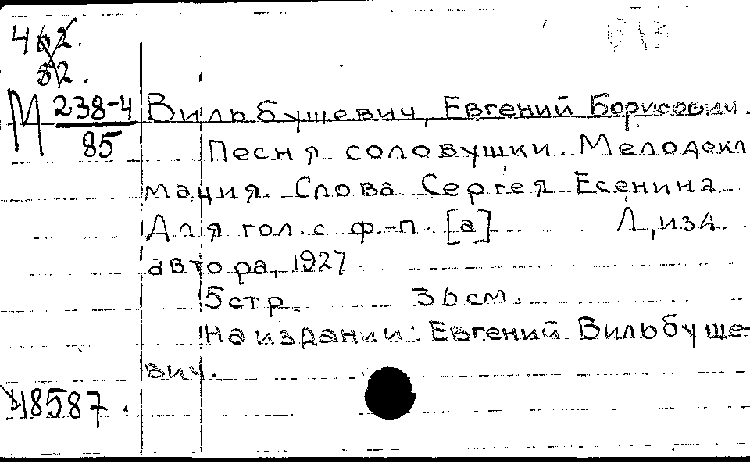 М 238-4
85
Вильбушевич, Евгений Борисович.
Песня соловушки. Мелодекла
мация. Слова Сергея Есенина
Для гол. с ф.-п. [а] Л, изд.
автора, 1927
5 стр. 36 см.
На издании: Евгений Вильбуше-
вич.
18587.